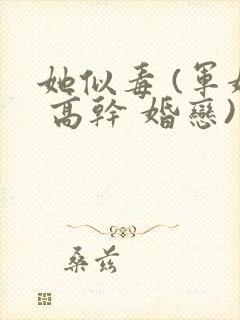 她似毒(軍婚
高幹 婚戀)
桑茲